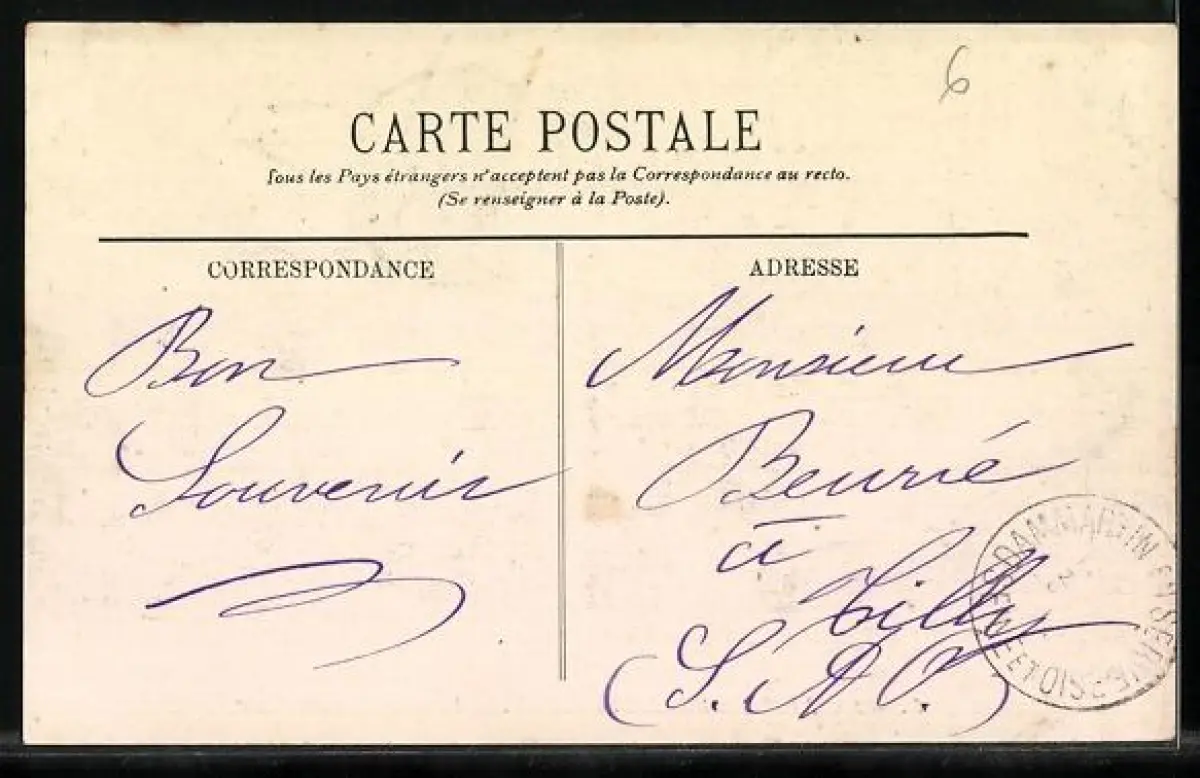 6
CARTE POSTALE
Tous les Pays étrangers n'acceptent pas la Correspondance au recto.
(Se renseigner à la Poste).
CORRESPONDANCE
Bon
Souvenir
ADRESSE
Monsieur
Beurié
à
Tilly
(S. & O.)
DAMMARTIN EN SERVE
SEINE ET OISE